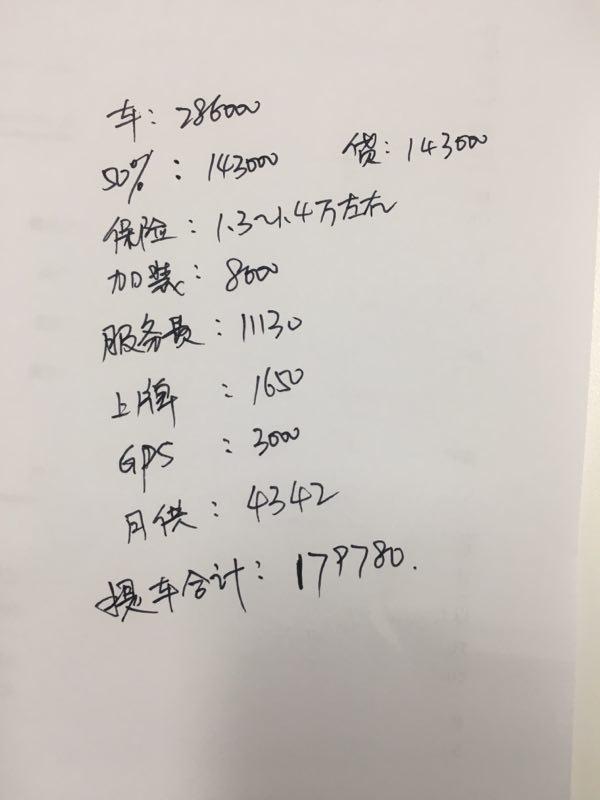 车：286000
50%：143000 贷：143000
保险：1.3~1.4万左右
加装：8000
服务费：11130
上牌：1650
GPS：3000
月供：4342
提车合计：179780.